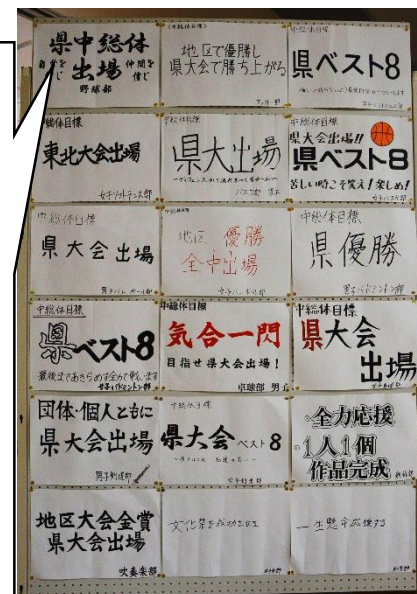 県中総体
自分を信じ 出場 仲間を信じ
野球部
中総体目標
地区で優勝し
県大会で勝ち上がる
中総体目標
県ベスト8
中総体目標
東北大会出場
女子ソフトテニス部
中総体目標
県大会出場
中総体目標
県大会出場!!
県ベスト8
苦しい時こそ笑え!楽しめ!
女子バスケ部
中総体目標
県大会出場
男子バレーボール部
地区 優勝
全中出場
中総体目標
県優勝
男子バドミントン部
中総体目標
県ベスト8
最後まであきらめず全力で戦います
女子バドミントン部
中総体目標
気合一閃
目指せ県大会出場!
卓球部 男子
中総体目標
県大会
出場
団体・個人ともに
県大会出場
男子剣道部
中総体目標
県大会ベスト8
女子剣道部
全力応援
1人1個
作品完成
地区大会金賞
県大会出場
吹奏楽部
文化祭を成功させる
一生懸命応援する